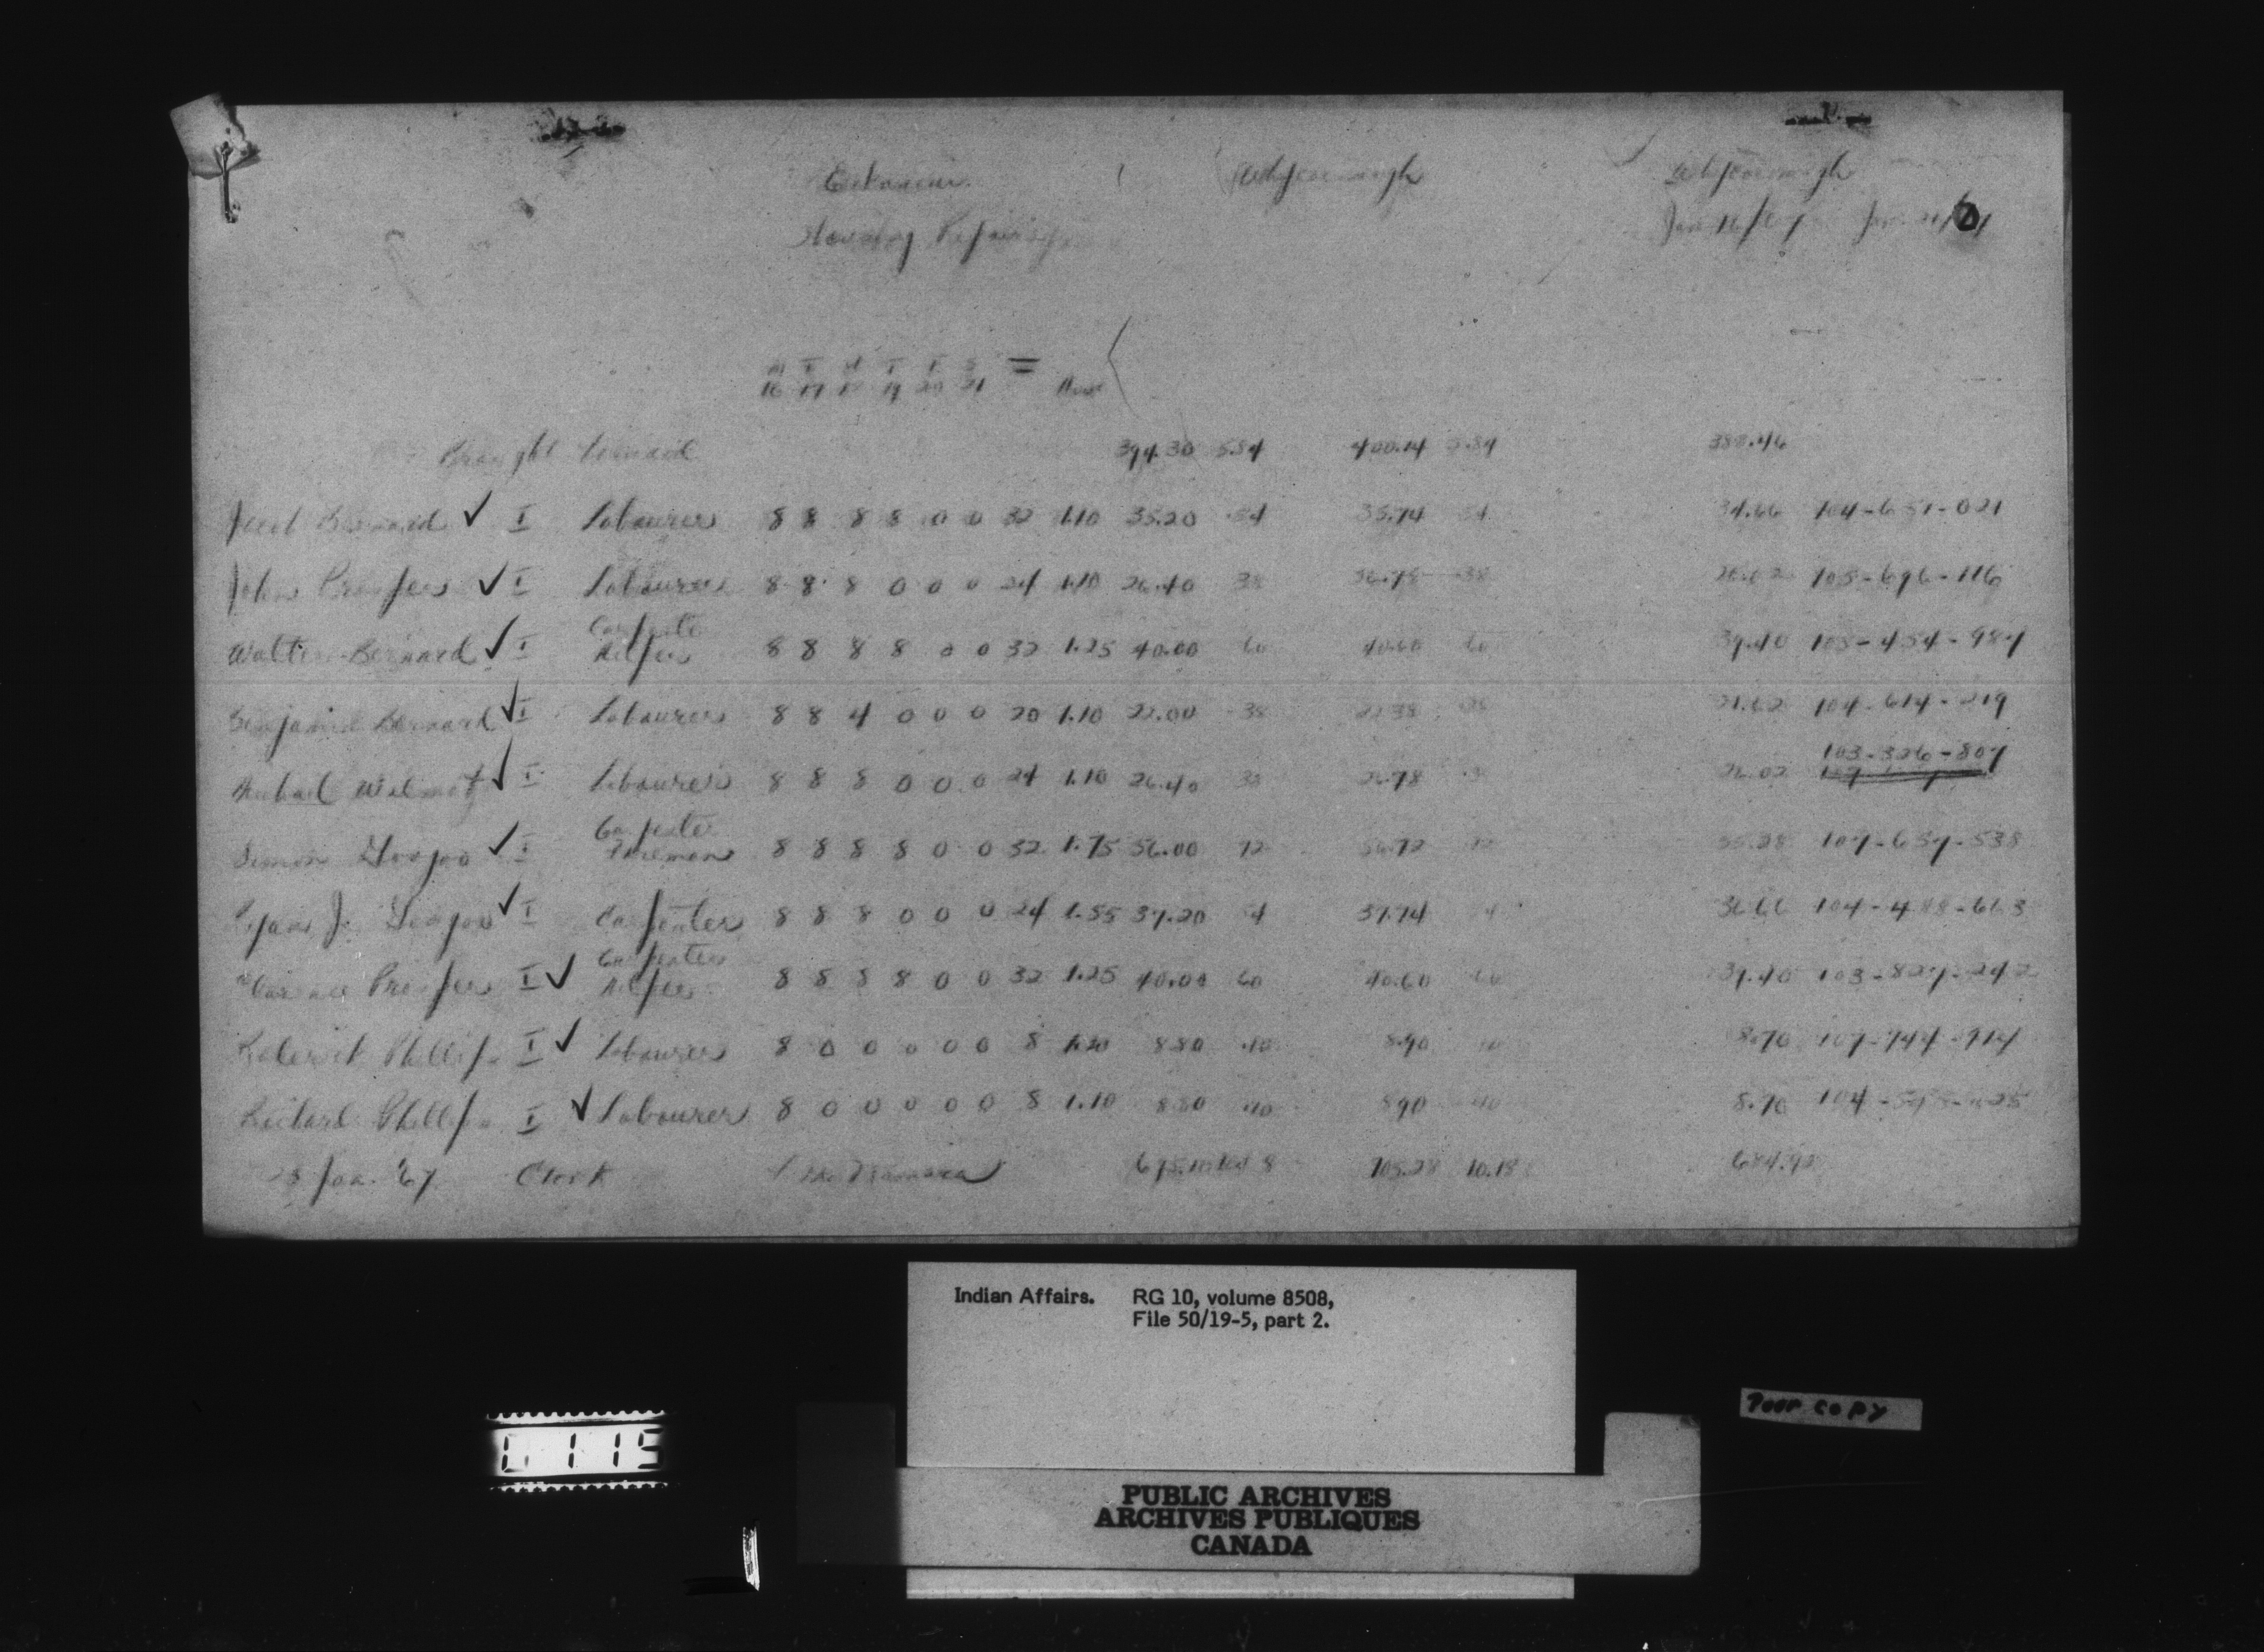 Eskasoni
Housing Repairs
Whycocomagh
Whycocomagh
Jan 16/67 Jan 21/67
M T W T F S =
16 17 18 19 20 21 Hours
Brought Forward 394.30 5.84 400.14 5.84 388.46
Bernard ✓ I Labourer 8 8 8 8 0 0 32 1.10 35.20 .54 35.74 54 34.66 104-651-021
John Prosper ✓ I Labourer 8 8 8 0 0 0 24 1.10 26.40 38 26.78 .38 26.02 103-696-116
Carpenter
Walter Bernard ✓ I Helper 8 8 8 8 0 0 32 1.25 40.00 60 40.60 60 39.40 103-454-984
Benjamin Bernard ✓ I Labourer 8 8 4 0 0 0 20 1.10 22.00 38 22.38 38 21.62 104-614-219
103-326-807
Michael Wilmot ✓ I Labourer 8 8 8 0 0 0 24 1.10 26.40 38 26.78 26.02
Carpenter
Simon Googoo ✓ I Foreman 8 8 8 8 0 0 32 1.75 56.00 72 56.72 72 55.28 107-657-538
J. Googoo ✓ I Carpenter 8 8 8 0 0 0 24 1.55 37.20 54 37.74 36.66 104-488-663
Carpenter
Clarence Prosper I ✓ Helper 8 8 8 8 0 0 32 1.25 40.00 60 40.60 60 39.40 103-827-242
Roderick Phillips I ✓ Labourer 8 0 0 0 0 0 8 1.10 8.80 .10 8.90 10 8.70 107-744-914
Richard Phillips I ✓ Labourer 8 0 0 0 0 0 8 1.10 8.80 .10 8.90 10 8.70 104
Jan. '67 Clerk 705.28 10.18 684.92
Indian Affairs. RG 10, volume 8508,
File 50/19-5, part 2.
Poor copy
1115
PUBLIC ARCHIVES
ARCHIVES PUBLIQUES
CANADA